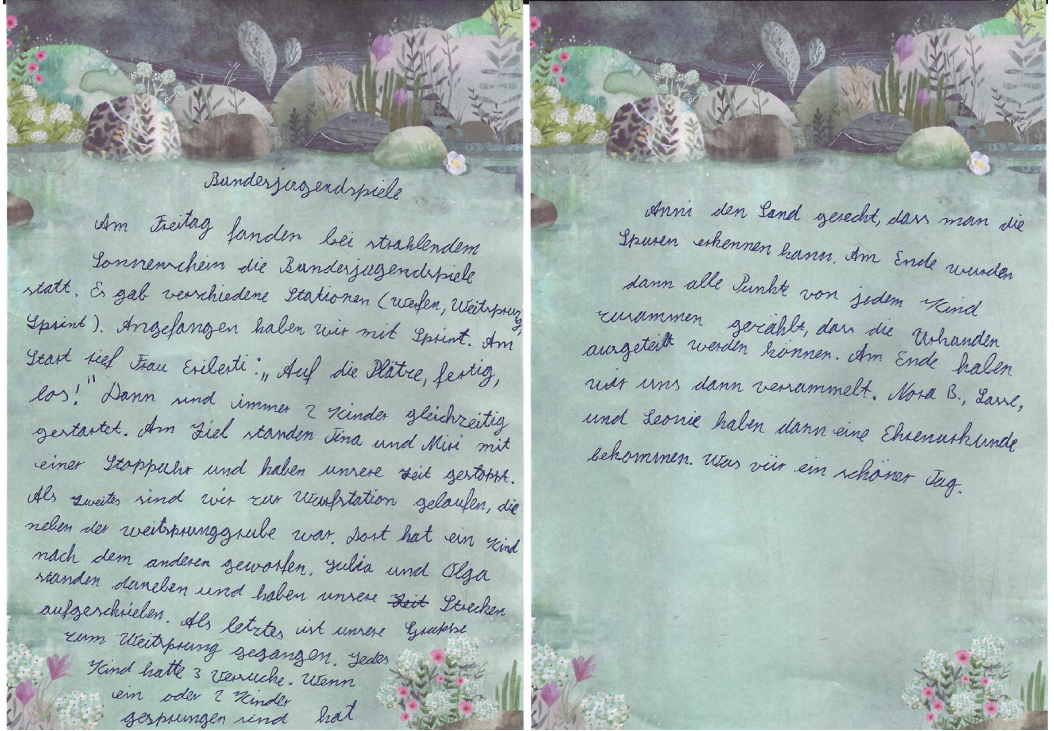 Bundesjugendspiele
Am Freitag fanden bei strahlendem
Sonnenschein die Bundesjugendspiele
statt. Es gab verschiedene Stationen (Werfen, Weitsprung,
Sprint). Angefangen haben wir mit Sprint. Am
Start rief Frau Eriberti: „Auf die Plätze, fertig,
los!" Dann sind immer 2 Kinder gleichzeitig
gestartet. Am Ziel standen Tina und Miri mit
einer Stoppuhr und haben unsere Zeit gestoppt.
Als zweites sind wir zur Wurfstation gelaufen, die
neben der Weitsprunggrube war. Dort hat ein Kind
nach dem anderen geworfen. Julia und Olga
standen daneben und haben unsere Zeit Strecken
aufgeschrieben. Als letztes ist unsere Gruppe
zum Weitsprung gegangen. Jedes
Kind hatte 3 Versuche. Wenn
ein oder 2 Kinder
gesprungen sind hat
Anni den Sand gerecht, dass man die
Spuren erkennen kann. Am Ende wurden
dann alle Punkte von jedem Kind
zusammen gezählt, dass die Urkunden
ausgeteilt werden können. Am Ende haben
wir uns dann versammelt. Nora B., Lasse,
und Leonie haben dann eine Ehrenurkunde
bekommen. Was für ein schöner Tag.